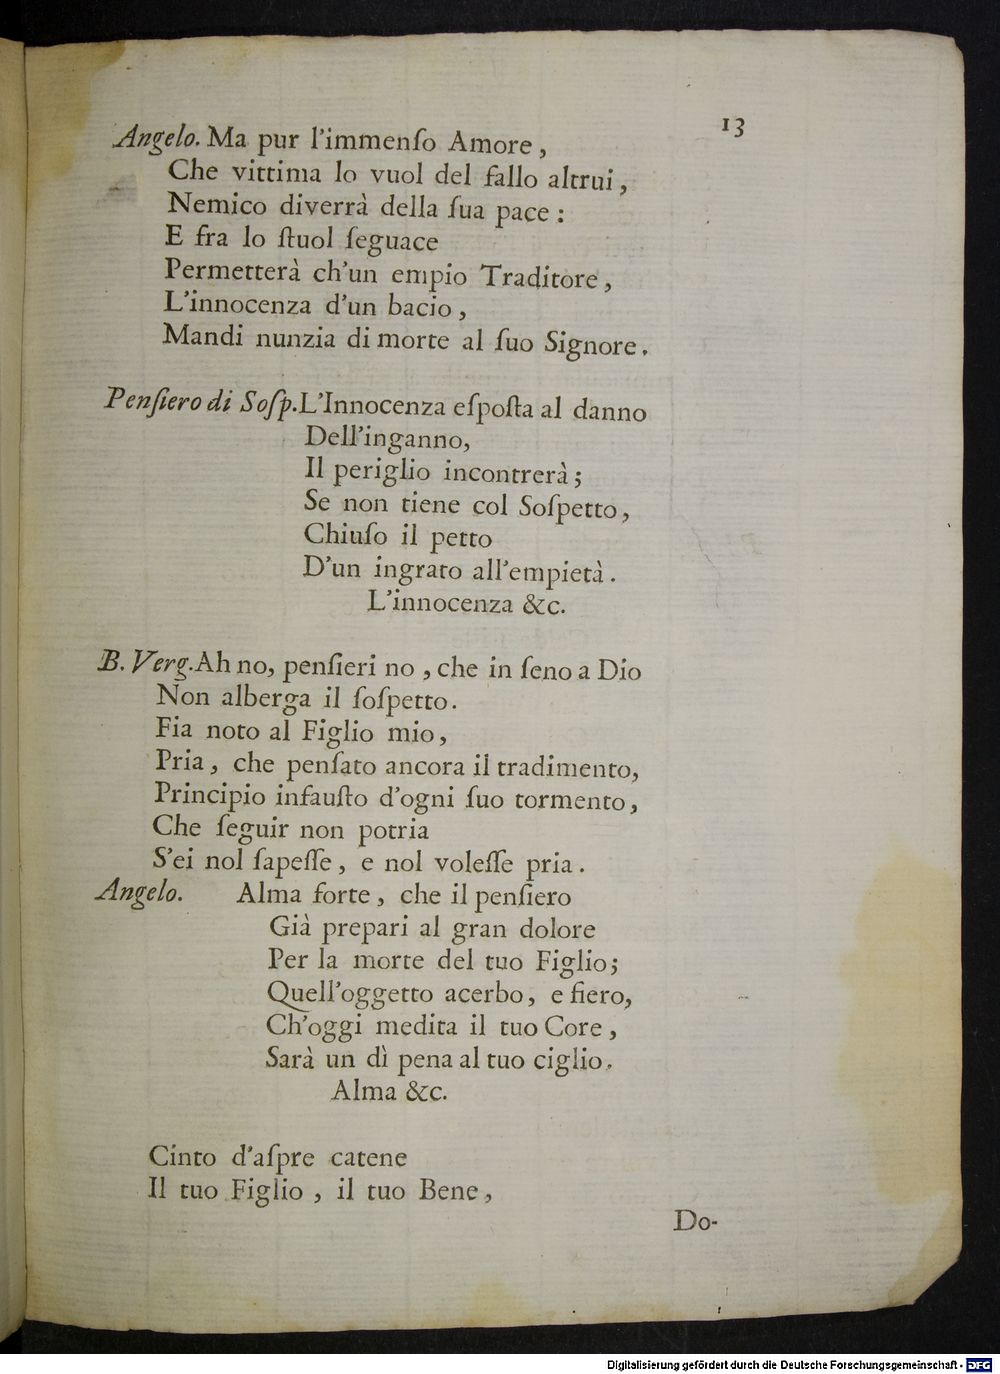 13
Angelo. Ma pur l'immenſo Amore,
Che vittima lo vuol del fallo altrui,
Nemico diverrà della ſua pace:
E fra lo ſtuol ſeguace
Permetterà ch'un empio Traditore,
L'innocenza d'un bacio,
Mandi nunzia di morte al ſuo Signore.
Penſiero di Soſp. L'Innocenza eſpoſta al danno
Dell'inganno,
Il periglio incontrerà;
Se non tiene col Soſpetto,
Chiuſo il petto
D'un ingrato all'empietà.
L'innocenza &c.
B. Verg. Ah no, penſieri no, che in ſeno a Dio
Non alberga il ſoſpetto.
Fia noto al Figlio mio,
Pria, che penſato ancora il tradimento,
Principio infauſto d'ogni ſuo tormento,
Che ſeguir non potria
S'ei nol ſapeſſe, e nol voleſſe pria.
Angelo. Alma forte, che il penſiero
Già prepari al gran dolore
Per la morte del tuo Figlio;
Quell'oggetto acerbo, e fiero,
Ch'oggi medita il tuo Core,
Sarà un dì pena al tuo ciglio.
Alma &c.
Cinto d'aſpre catene
Il tuo Figlio, il tuo Bene,
Do-
Digitalisierung gefördert durch die Deutsche Forschungsgemeinschaft - DFG